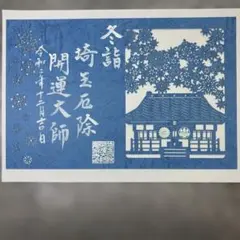 冬詣
埼玉厄除
開運大師
令和六年十二月吉日